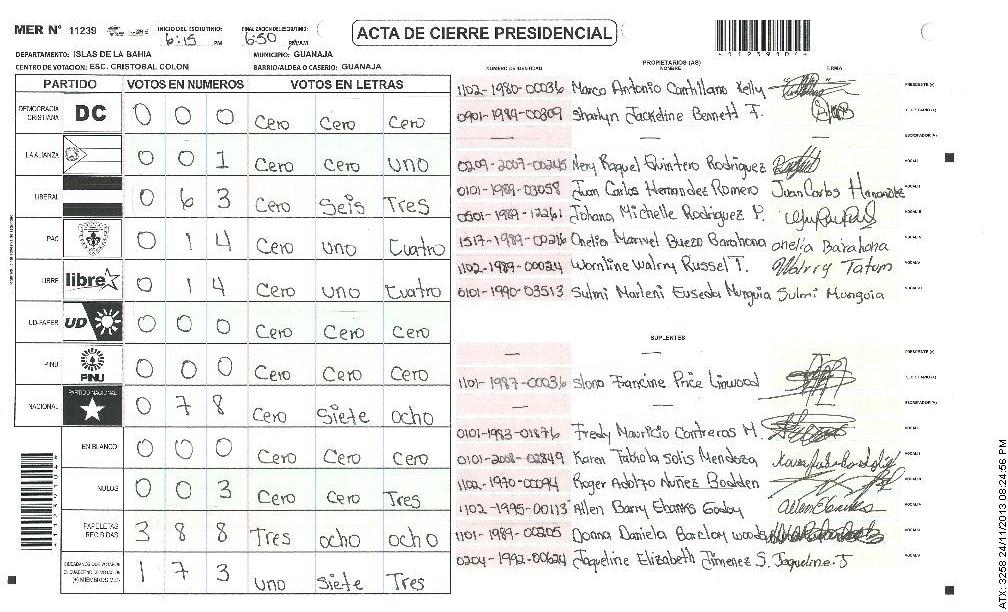 MER Nº 11239 INICIO DEL ESCRUTINIO: 6:15 PM FINALIZACION DEL ESCRUTINIO: 6:50 PM ACTA DE CIERRE PRESIDENCIAL
DEPARTAMENTO: ISLAS DE LA BAHIA MUNICIPIO: GUANAJA
CENTRO DE VOTACION: ESC. CRISTOBAL COLON BARRIO/ALDEA O CASERIO: GUANAJA
PARTIDO VOTOS EN NUMEROS VOTOS EN LETRAS
DEMOCRACIA CRISTIANA DC 0 0 0 Cero Cero Cero
LA ALIANZA 0 0 1 Cero Cero uno
LIBERAL 0 6 3 Cero Seis Tres
PAC 0 1 4 Cero uno Cuatro
LIBRE libre 0 1 4 Cero uno Cuatro
UD-FAPER UD 0 0 0 Cero Cero Cero
PINU PINU 0 0 0 Cero Cero Cero
NACIONAL PARTIDO NACIONAL 0 7 8 Cero Siete ocho
EN BLANCO 0 0 0 Cero Cero Cero
NULOS 0 0 3 Cero Cero Tres
PAPELETAS RECIBIDAS 3 8 8 Tres ocho ocho
CIUDADANOS QUE VOTARON 1 7 3 uno Siete Tres
PROPIETARIOS (AS)
NUMERO DE IDENTIDAD NOMBRE FIRMA
1102-1980-00036 Marco Antonio Carhillano Kelly PRESIDENTE (A)
0901-1984-00809 Sharlyn Jackeline Bennett F. SECRETARIO (A)
— — — ESCRUTADOR (A)
0209-2007-00245 Nery Raquel Quintero Rodriguez VOCAL I
0101-1989-03058 Juan Carlos Hernandez Romero Juan Carlos Hernandez
0501-1989-12261 Johana Michelle Rodriguez P.
1517-1989-00216 Onelia Marivel Buezo Barahona onelia Barahona
1102-1989-00024 Wornline Walrry Russel T. Walrry Tatum
0101-1990-03513 Sulmi Marleni Euseda Munguia Sulmi Munguia
SUPLENTES
— — PRESIDENTE (A)
1101-1987-00036 Slona Francine Price Linwood SECRETARIO (A)
— — ESCRUTADOR (A)
0101-1983-01876 Fredy Mauricio Contreras M.
0101-2008-02849 Karen Fabiola Solis Mendoza
1102-1970-00094 Roger Adolfo Nuñez Bodden
1102-1995-00113 Allen Barry Ebanks Godoy Allen Ebanks
1101-1989-00205 Donna Daniela Barclay woods
0204-1992-00624 Jaqueline Elizabeth Jimenez S. Jaqueline.J
ATX: 3258 24/11/2013 08:24:56 PM